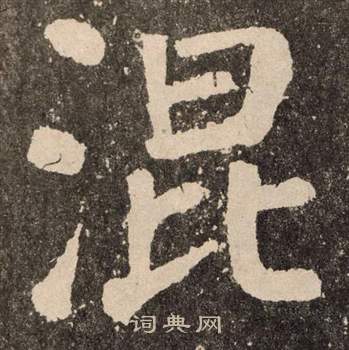 混
词典网